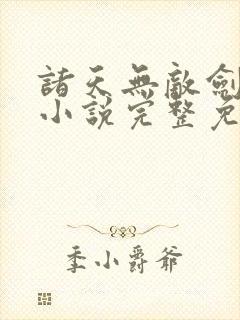 諸天無敵劍
小說完整免
季小爵爺